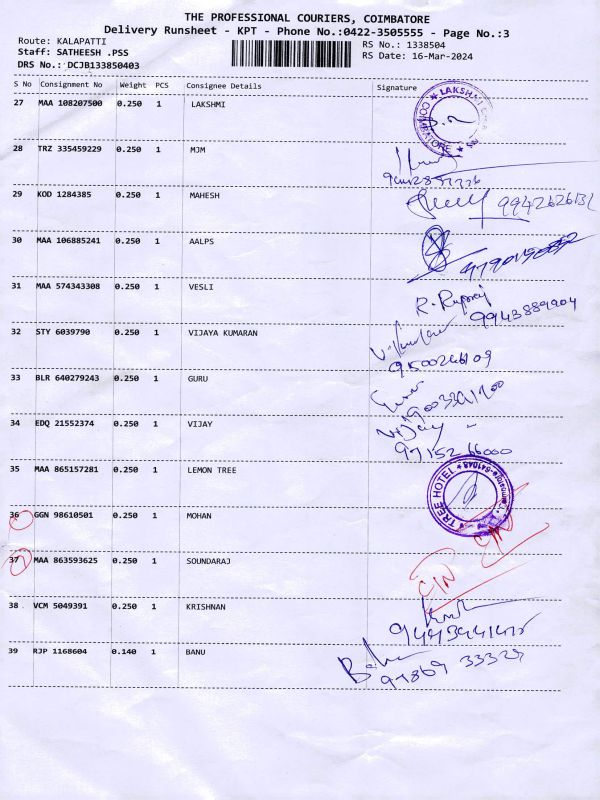 THE PROFESSIONAL COURIERS, COIMBATORE
Delivery Runsheet - KPT - Phone No.:0422-3505555 - Page No.:3
Route: KALAPATTI RS No.: 1338504
Staff: SATHEESH .PSS RS Date: 16-Mar-2024
DRS No.: DCJB133850403
S No Consignment No Weight PCS Consignee Details Signature
27 MAA 108207500 0.250 1 LAKSHMI
LAKSHMI COIMBATORE
28 TRZ 335459229 0.250 1 MJM
29 KOD 1284385 0.250 1 MAHESH
30 MAA 106885241 0.250 1 AALPS
31 MAA 574343308 0.250 1 VESLI
9943889904
32 STY 6039790 0.250 1 VIJAYA KUMARAN
33 BLR 640279243 0.250 1 GURU
34 EDQ 21552374 0.250 1 VIJAY
Vijay
35 MAA 865157281 0.250 1 LEMON TREE
TREE HOTEL
36 GGN 98610501 0.250 1 MOHAN
37 MAA 863593625 0.250 1 SOUNDARAJ
38 VCM 5049391 0.250 1 KRISHNAN
39 RJP 1168604 0.140 1 BANU